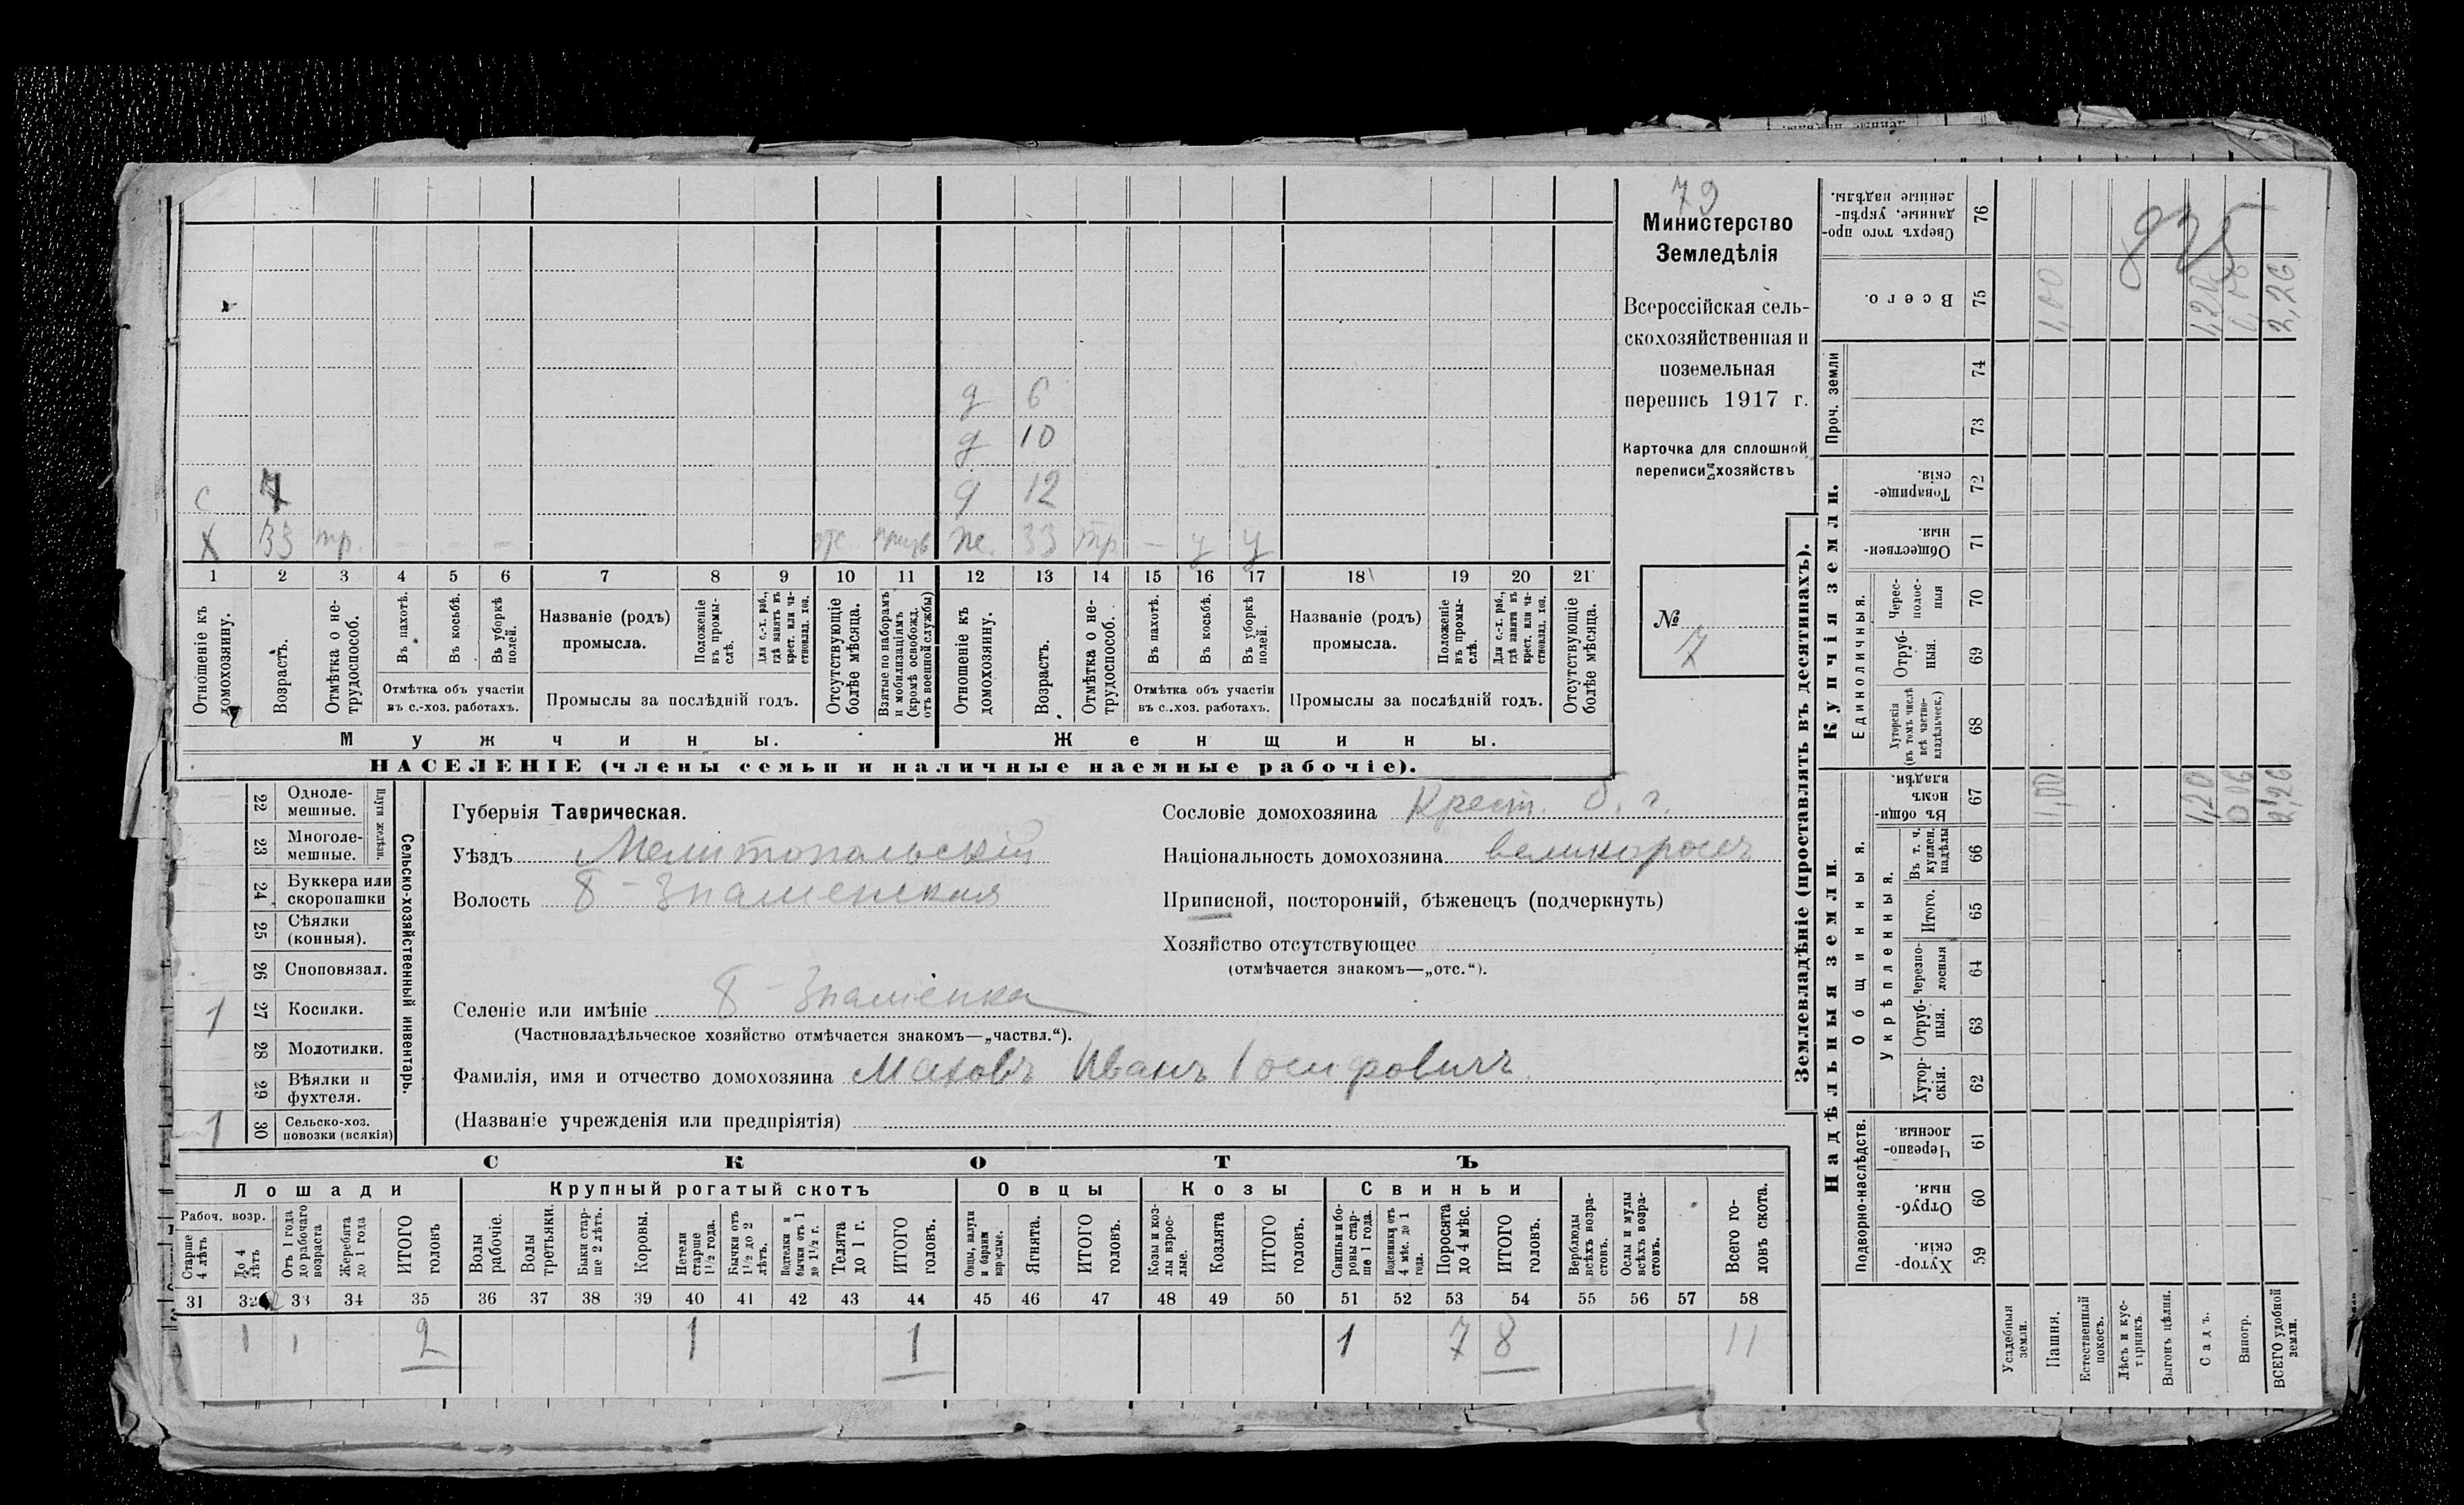 79
Министерство
Земледѣлія
Всероссійская сель-
скохозяйственная и
поземельная
перепись 1917 г.
Карточка для сплошной
переписи хозяйствъ
№
7
д 6
д 10
с 4 д 12
х 33 тр. - - - отс. призв ж. 33 тр - у у
1 2 3 4 5 6 7 8 9 10 11 12 13 14 15 16 17 18 19 20 21
Отношеніе къ домохозяину.
Возрастъ.
Отмѣтка о не-трудоспособ.
Въ пахотѣ.
Въ косьбѣ.
Въ уборкѣ полей.
Отмѣтка объ участіи
въ с.-хоз. работахъ.
Названіе (родъ)
промысла.
Положеніе въ промы-слѣ.
Для с.-х. раб., гдѣ занятъ въ крест. или ча-стновлад. хоз.
Промыслы за послѣдній годъ.
Отсутствующіе болѣе мѣсяца.
Взятые по наборамъ и мобилизаціямъ (кромѣ освобожд. отъ военной службы)
Отношеніе къ домохозяину.
Возрастъ.
Отмѣтка о не-трудоспособ.
Въ пахотѣ.
Въ косьбѣ.
Въ уборкѣ полей.
Отмѣтка объ участіи
въ с.-хоз. работахъ.
Названіе (родъ)
промысла.
Положеніе въ промы-слѣ.
Для с.-х. раб., гдѣ занята въ крест. или ча-стновлад. хоз.
Промыслы за послѣдній годъ.
Отсутствующіе болѣе мѣсяца.
Мужчины. Женщины.
НАСЕЛЕНІЕ (члены семьи и наличные наемные рабочіе).
Сельско-хозяйственный инвентарь.
Плуги желѣзн.
22 Одноле-мешные.
23 Многоле-мешные.
24 Буккера или скоропашки
25 Сѣялки (конныя).
26 Сноповязал.
1 27 Косилки.
28 Молотилки.
29 Вѣялки и фухтеля.
1 30 Сельско-хоз. повозки (всякія)
Губернія Таврическая.
Уѣздъ Мелитопольскій
Волость Б-Знаменская
Селеніе или имѣніе Б-Знаменка
(Частновладѣльческое хозяйство отмѣчается знакомъ—„частвл.“).
Фамилія, имя и отчество домохозяина Маховъ Иванъ Іосифовичъ
(Названіе учрежденія или предпріятія)
Сословіе домохозяина Крест. б. г.
Національность домохозяина великороссъ
Приписной, посторонній, бѣженецъ (подчеркнуть)
Хозяйство отсутствующее
(отмѣчается знакомъ—„отс.“).
СКОТЪ
Лошади Крупный рогатый скотъ Овцы Козы Свиньи
Рабоч. возр.
Старше 4 лѣтъ
До 4 лѣтъ
Отъ 1 года до рабочаго возраста
Жеребята до 1 года
ИТОГО головъ
Волы рабочіе.
Волы третьяки.
Быки стар-ше 2 лѣтъ.
Коровы.
Нетели старше 1½ года.
Бычки отъ 1½ до 2 лѣтъ.
Подтелки и бычки отъ 1 до 1½ г.
Телята до 1 г.
ИТОГО головъ.
Овцы, валухи и бараны взрослые.
Ягнята.
ИТОГО головъ.
Козы и коз-лы взрос-лые.
Козлята
ИТОГО головъ.
Свиньи и бо-ровы стар-ше 1 года.
Подсвинки отъ 4 мѣс. до 1 года.
Поросята до 4 мѣс.
ИТОГО головъ.
Верблюды всѣхъ возра-стовъ.
Ослы и мулы всѣхъ возра-стовъ.
Всего го-ловъ скота.
31 32 33 34 35 36 37 38 39 40 41 42 43 44 45 46 47 48 49 50 51 52 53 54 55 56 57 58
1 1 2 1 1 1 7 8 11
Землевладѣніе (проставлять въ десятинахъ).
Надѣльныя земли. Купчія земли.
Подворно-наслѣдств.
Общинныя.
Укрѣпленныя.
Единоличныя.
Проч. земли
Хутор-скія. 59
Отруб-ныя. 60
Черезпо-лосныя. 61
Хутор-скія. 62
Отруб-ныя. 63
Черезпо-лосныя 64
Итого. 65
Въ т. ч. куплен. надѣлы 66
Въ общин-номъ владѣн. 67
Хуторскія (въ томъ числѣ всѣ частно-владѣльческ.) 68
Отруб-ныя. 69
Черес-полос-ныя 70
Обществен-ныя. 71
Товарище-скія. 72
73
74
Всего. 75
Сверхъ того про-данные, укрѣп-ленные надѣлы. 76
Усадебныя земли.
Пашня. 1,00 1,00
Естественный покосъ.
Лѣсъ и кус-тарникъ.
Выгонъ цѣлин.
Садъ. 1,20 1,20
Виногр. 0,06 0,06
ВСЕГО удобной земли. 2,26 2,26